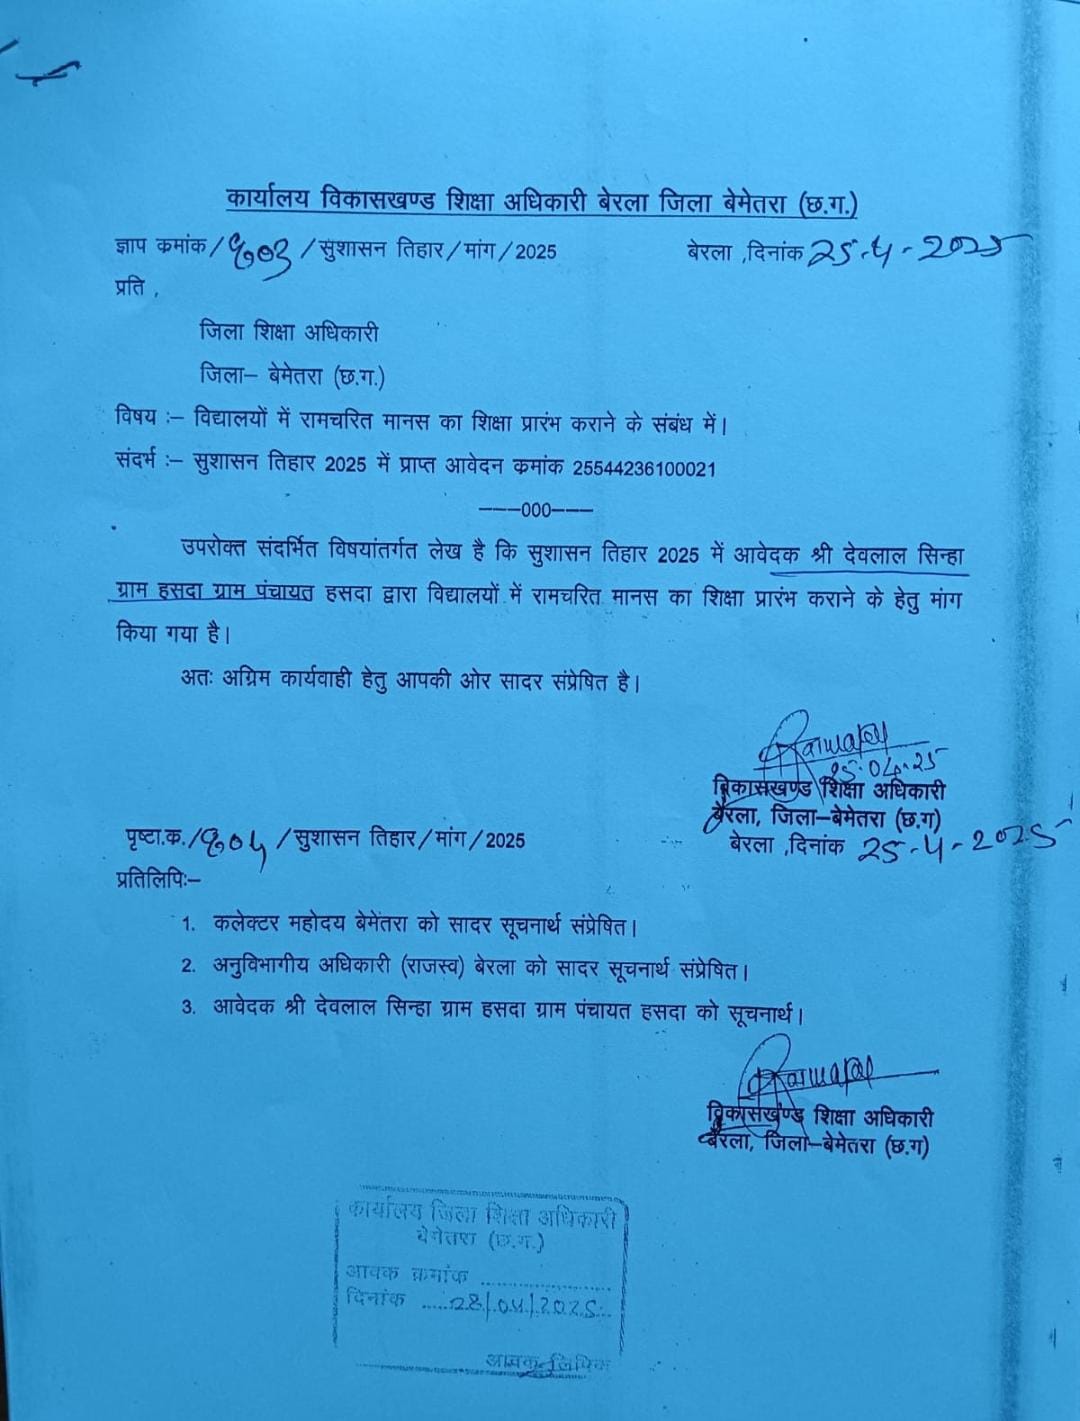 कार्यालय विकासखण्ड शिक्षा अधिकारी बेरला जिला बेमेतरा (छ.ग.)
ज्ञाप कमांक/903/सुशासन तिहार/मांग/2025 बेरला ,दिनांक 25-4-2025
प्रति ,
जिला शिक्षा अधिकारी
जिला– बेमेतरा (छ.ग.)
विषय :– विद्यालयों में रामचरित मानस का शिक्षा प्रारंभ कराने के संबंध में।
संदर्भ :– सुशासन तिहार 2025 में प्राप्त आवेदन क्रमांक 25544236100021
–––000–––
उपरोक्त संदर्भित विषयांतर्गत लेख है कि सुशासन तिहार 2025 में आवेदक श्री देवलाल सिन्हा
ग्राम हसदा ग्राम पंचायत हसदा द्वारा विद्यालयों में रामचरित मानस का शिक्षा प्रारंभ कराने के हेतु मांग
किया गया है।
अतः अग्रिम कार्यवाही हेतु आपकी ओर सादर संप्रेषित है।
25.04.25
विकासखण्ड शिक्षा अधिकारी
बेरला, जिला–बेमेतरा (छ.ग)
पृष्टा.क./904/सुशासन तिहार/मांग/2025 बेरला ,दिनांक 25-4-2025
प्रतिलिपिः–
1. कलेक्टर महोदय बेमेंतरा को सादर सूचनार्थ संप्रेषित।
2. अनुविभागीय अधिकारी (राजस्व) बेरला को सादर सूचनार्थ संप्रेषित।
3. आवेदक श्री देवलाल सिन्हा ग्राम हसदा ग्राम पंचायत हसदा को सूचनार्थ।
विकासखण्ड शिक्षा अधिकारी
बेरला, जिला–बेमेतरा (छ.ग)
कार्यालय जिला शिक्षा अधिकारी
बेमेतरा (छ.ग.)
आवक क्रमांक ....................
दिनांक .....28/04/2025...
आवक लिपिक